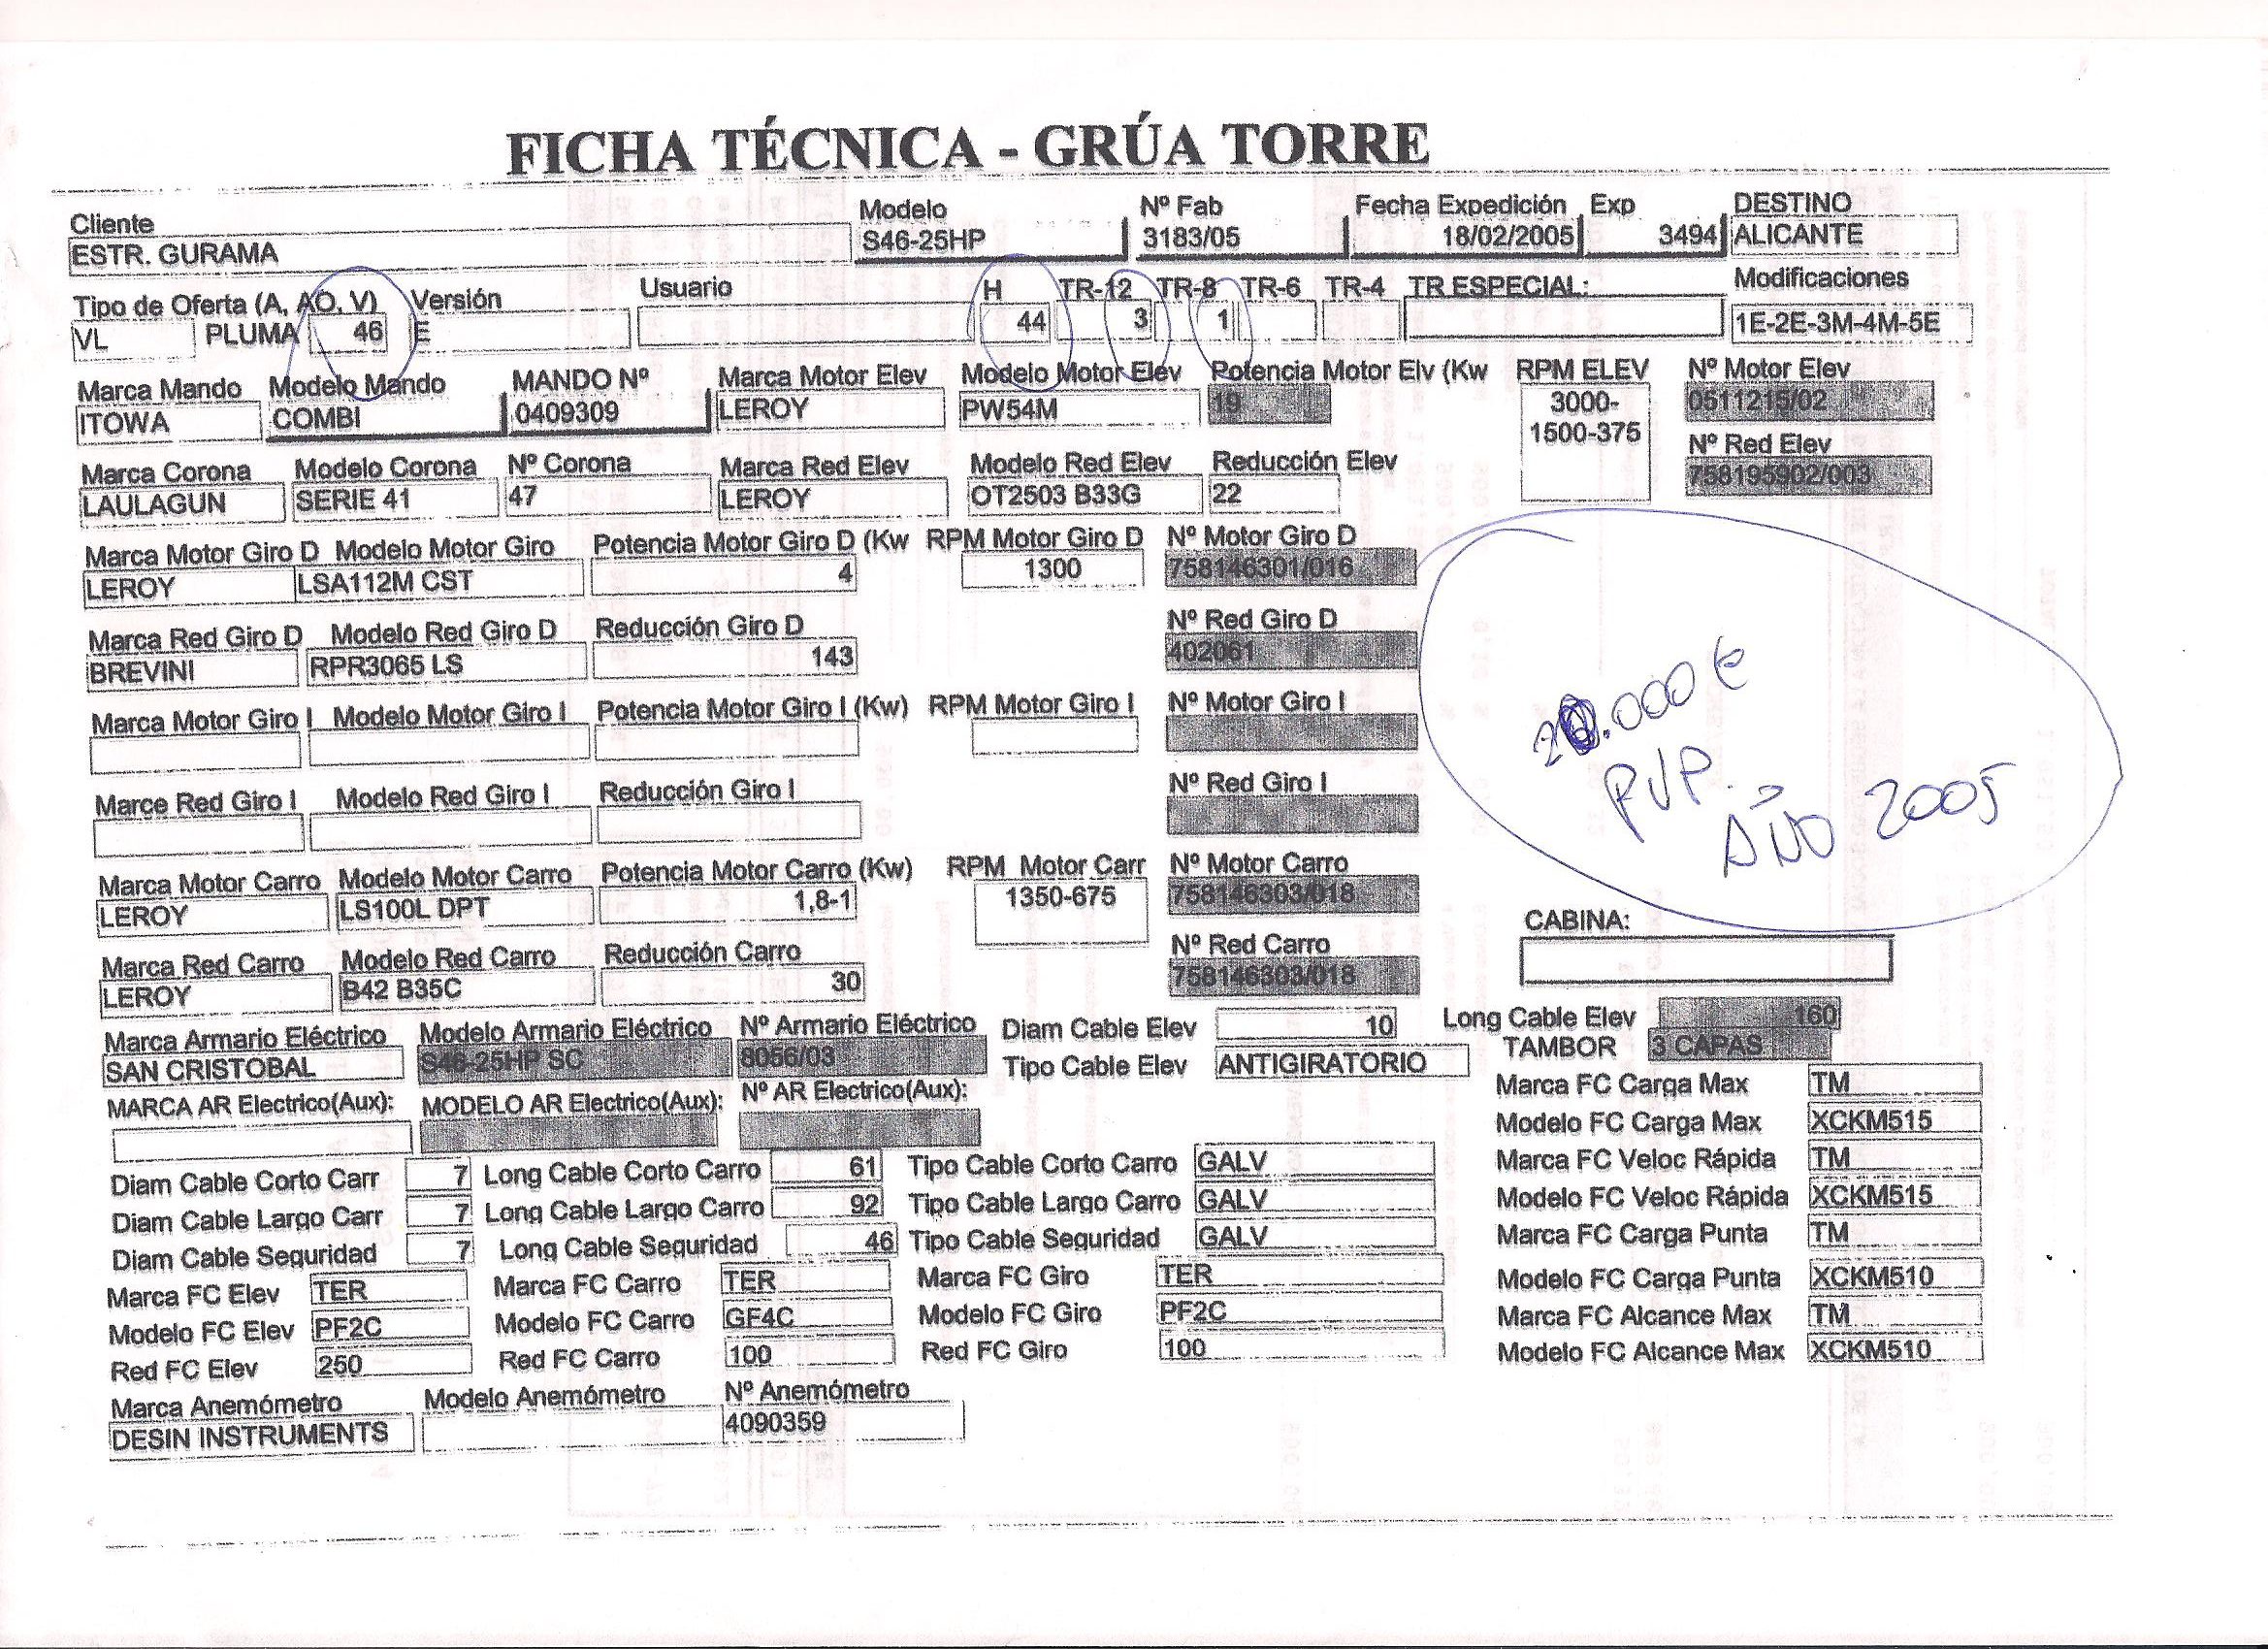 FICHA TÉCNICA - GRÚA TORRE
Cliente Modelo Nº Fab Fecha Expedición Exp DESTINO
ESTR. GURAMA S46-25HP 3183/05 18/02/2005 3494 ALICANTE
Tipo de Oferta (A, AO, V) Versión Usuario H TR-12 TR-8 TR-6 TR-4 TR ESPECIAL: Modificaciones
VL PLUMA 46 E 44 3 1 1E-2E-3M-4M-5E
Marca Mando Modelo Mando MANDO Nº Marca Motor Elev Modelo Motor Elev Potencia Motor Elv (Kw RPM ELEV Nº Motor Elev
ITOWA COMBI 0409309 LEROY PW54M 19 3000- 0511215/02
1500-375
Nº Red Elev
Marca Corona Modelo Corona Nº Corona Marca Red Elev Modelo Red Elev Reducción Elev 758195902/003
LAULAGUN SERIE 41 47 LEROY OT2503 B33G 22
Marca Motor Giro D Modelo Motor Giro Potencia Motor Giro D (Kw RPM Motor Giro D Nº Motor Giro D
LEROY LSA112M CST 4 1300 758146301/016
Marca Red Giro D Modelo Red Giro D Reducción Giro D Nº Red Giro D
BREVINI RPR3065 LS 143 402061
.000 €
PVP.
AÑO 2005
Marca Motor Giro I Modelo Motor Giro I Potencia Motor Giro I (Kw) RPM Motor Giro I Nº Motor Giro I
Marce Red Giro I Modelo Red Giro I Reducción Giro I Nº Red Giro I
Marca Motor Carro Modelo Motor Carro Potencia Motor Carro (Kw) RPM Motor Carr Nº Motor Carro
LEROY LS100L DPT 1,8-1 1350-675 758146303/018
CABINA:
Marca Red Carro Modelo Red Carro Reducción Carro Nº Red Carro
LEROY B42 B35C 30 758146303/018
Marca Armario Eléctrico Modelo Armario Eléctrico Nº Armario Eléctrico Diam Cable Elev 10 Long Cable Elev 160
SAN CRISTOBAL S46-25HP SC 8056/03 Tipo Cable Elev ANTIGIRATORIO TAMBOR 3 CAPAS
MARCA AR Electrico(Aux): MODELO AR Electrico(Aux): Nº AR Electrico(Aux): Marca FC Carga Max TM
Modelo FC Carga Max XCKM515
Diam Cable Corto Carr 7 Long Cable Corto Carro 61 Tipo Cable Corto Carro GALV Marca FC Veloc Rápida TM
Diam Cable Largo Carr 7 Long Cable Largo Carro 92 Tipo Cable Largo Carro GALV Modelo FC Veloc Rápida XCKM515
Diam Cable Seguridad 7 Long Cable Seguridad 46 Tipo Cable Seguridad GALV Marca FC Carga Punta TM
Marca FC Elev TER Marca FC Carro TER Marca FC Giro TER Modelo FC Carga Punta XCKM510
Modelo FC Elev PF2C Modelo FC Carro GF4C Modelo FC Giro PF2C Marca FC Alcance Max TM
Red FC Elev 250 Red FC Carro 100 Red FC Giro 100 Modelo FC Alcance Max XCKM510
Marca Anemómetro Modelo Anemómetro Nº Anemómetro
DESIN INSTRUMENTS 4090359